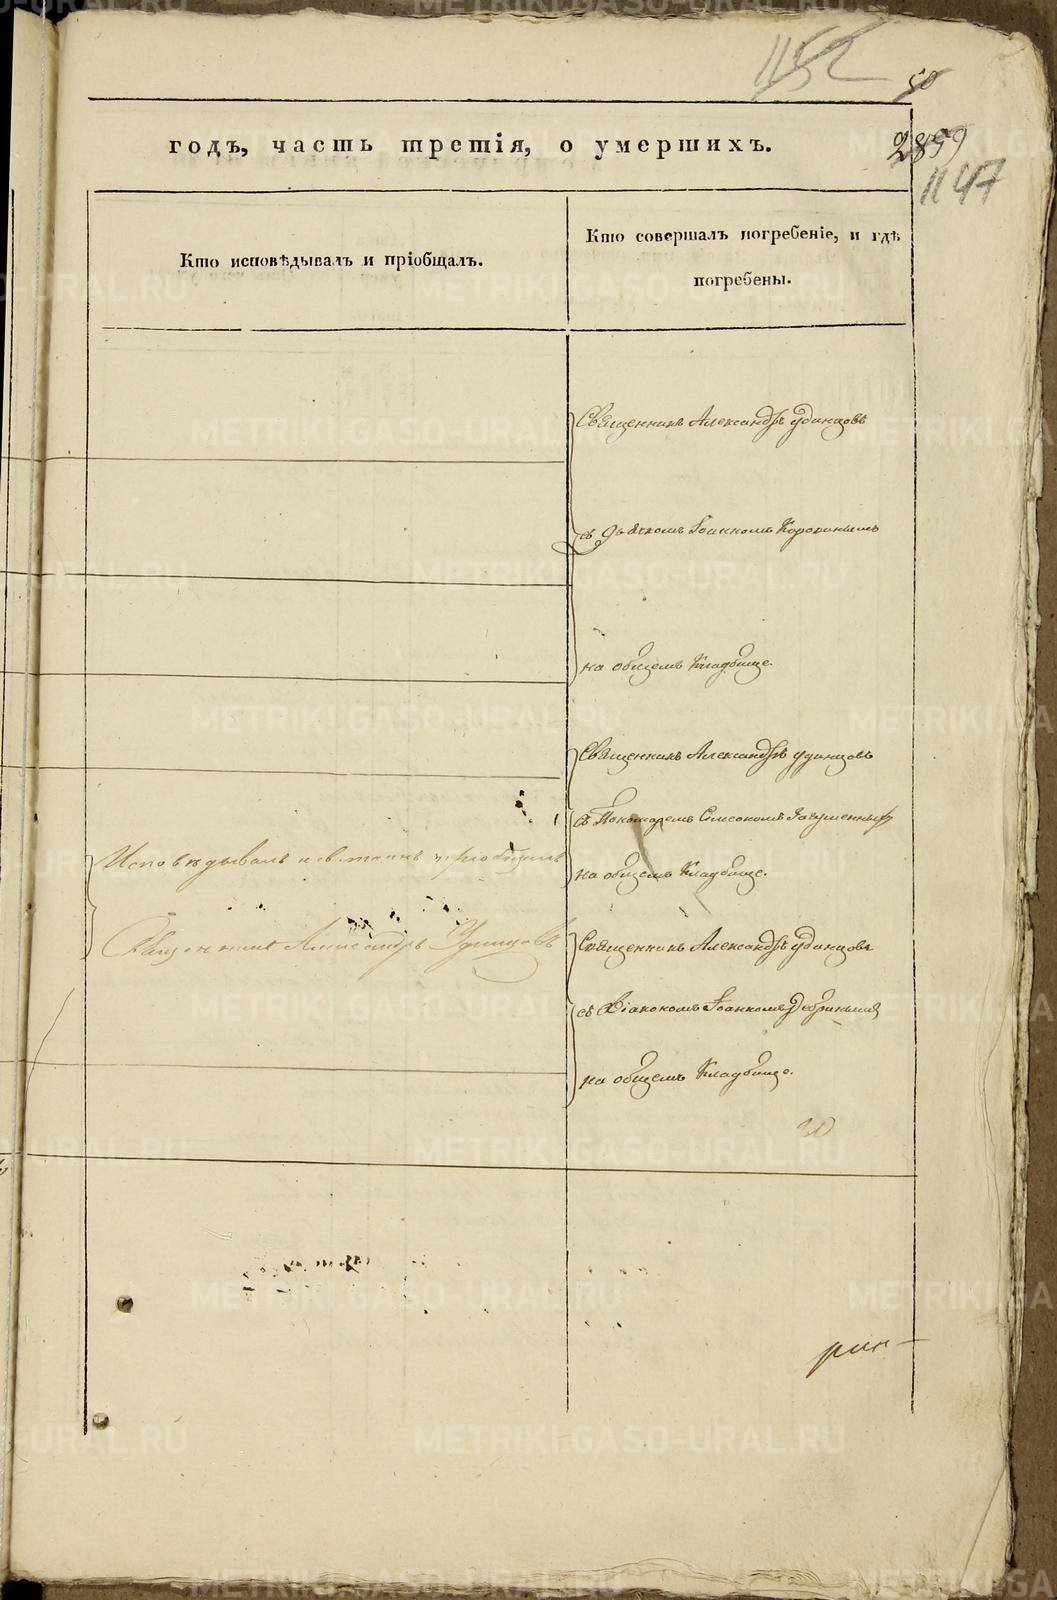 1152
50
годъ, часть третія, о умершихъ.
2859
1147
Кто исповѣдывалъ и пріобщалъ.
Кто совершалъ погребеніе, и гдѣ
погребены.
Священникъ Александръ Удинцовъ
съ Дьячкомъ Іоанномъ Коровинымъ
на общемъ Кладбище.
Священникъ Александръ Удинцовъ
съ Пономаремъ Симеономъ
на общемъ Кладбище.
Исповѣдывалъ и св. таинъ пріобщалъ
Священникъ Александръ Удинцовъ
Священникъ Александръ Удинцовъ
съ Діакономъ Іоанномъ
на общемъ Кладбище.
METRIKI.GASO-URAL.RU